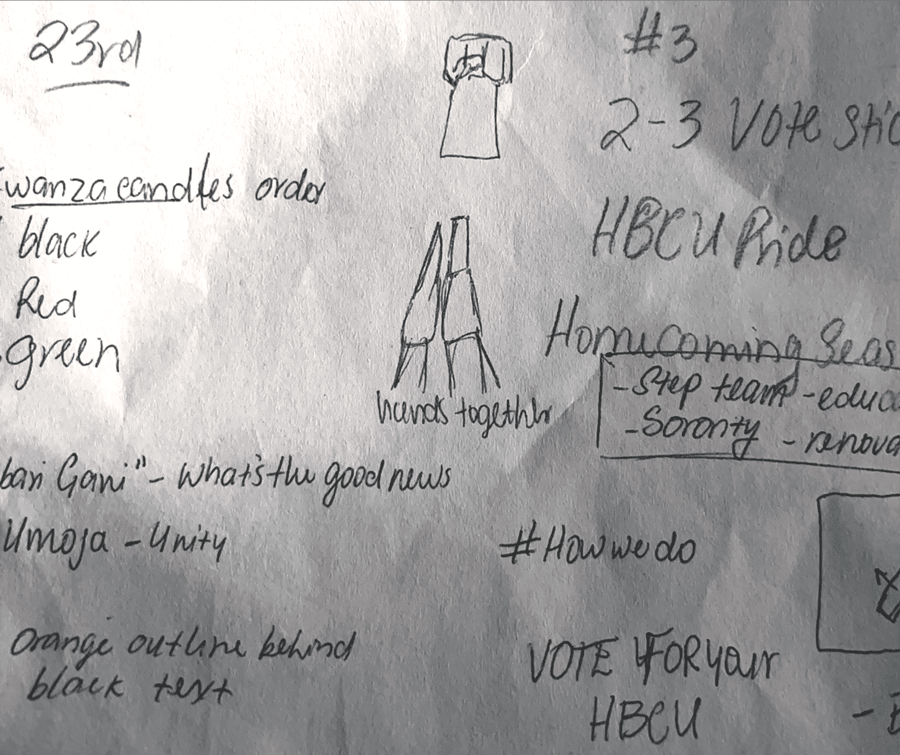 23rd
wanza candles order
black
Red
green
hands together
bari Gani" - what's the good news
Umoja - Unity
Orange outline behind
black text
#3
2-3 Vote stic
HBCU Pride
Homecoming Seas
- Step team - educa
- Sorority - renova
#Howwedo
VOTE FOR your
HBCU